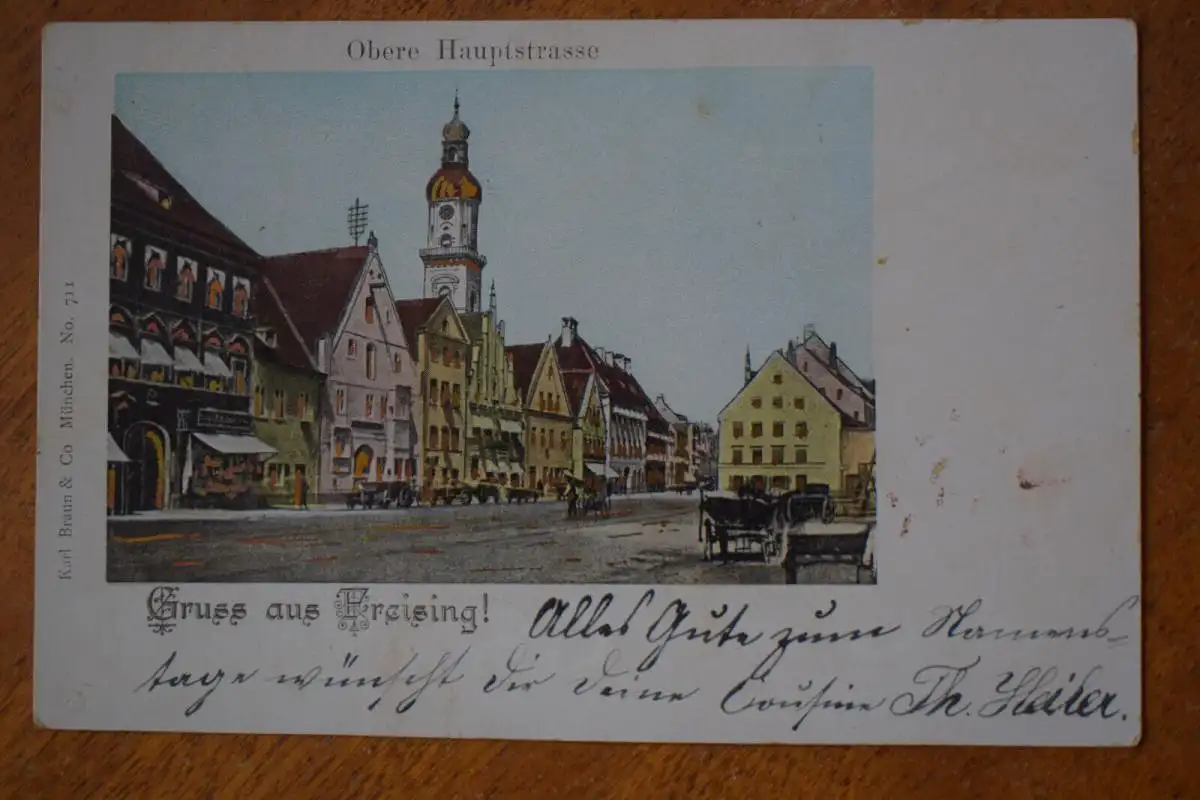 Obere Hauptstrasse
Karl Braun & Co München. No. 711
Gruss aus Freising!
Alles Gute zum Namens-
tage wünscht Dir Deine Cousine Th.